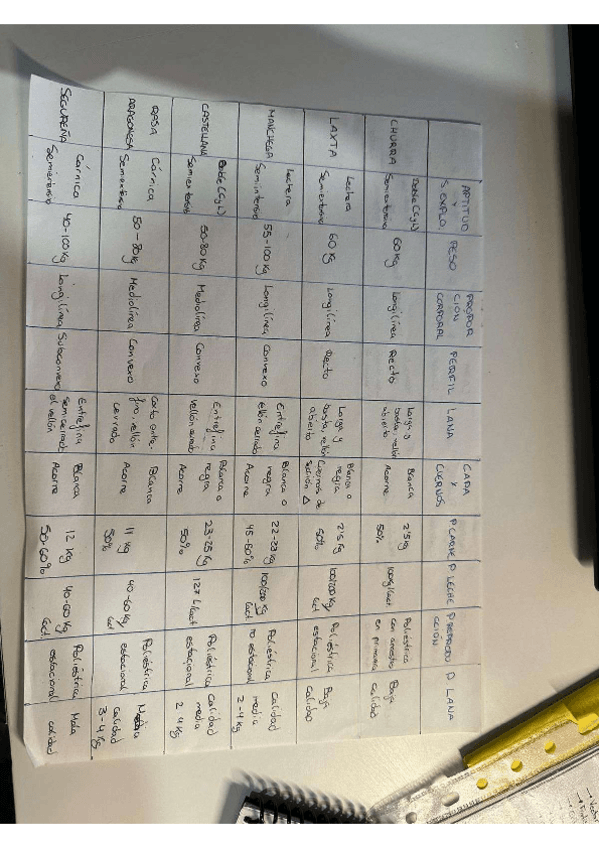 APTITUD Y S. EXPLO.
PESO
PROPORCIÓN CORPORAL
PERFIL
LANA
CAPA Y CUERNOS
P CARNE
P LECHE
P REPRODUCCIÓN
P LANA
CHURRA
Doble (C y L)
Semiextensivo
60 Kg
Longilínea
Recto
Larga y
basta, vellón
abierto
Blanca
Acorne
2'5 Kg
50%
100 Kg/Lact
Poliéstrica
con anestro
en primavera
Baja
calidad
LAXTA
Lechera
Semiextensivo
60 Kg
Longilínea
Recto
Larga y
basta, vellón
abierto
Blanca o
negra
Cuernos de
sección △
2'5 Kg
50%
100/200 Kg/
Lact
Poliéstrica
estacional
Baja
calidad
MANCHEGA
Lechera
Semiintensivo
55-100 Kg
Longilínea
Convexo
Entrefina
vellón cerrado
Blanca o
negra
Acorne
22-28 Kg
45-50%
100/200 Kg/
Lact
Poliéstrica
no estacional
Calidad
media
2-4 Kg
CASTELLANA
Doble (C y L)
Semiextensivo
50-80 Kg
Mediolínea
Convexo
Entrefina
vellón cerrado
Blanca o
negra
Acorne
23-25 Kg
50%
127 L/Lact
Poliéstrica
estacional
Calidad
media
2-4 Kg
RASA
ARAGONESA
Cárnica
Semiextensivo
50-80 Kg
Mediolínea
Convexo
Corto entre-
fino, vellón
cerrado
Blanca
Acorne
11 Kg
50%
40-60 Kg/
Lact
Poliéstrica
estacional
Media
calidad
3-4 Kg
SEGUREÑA
Cárnica
Semiextensivo
40-100 Kg
Longilínea
Subconvexo
Entrefina
semicerrado
el vellón
Blanca
Acorne
12 Kg
50-60%
40-60 Kg
Lact
Poliéstrica
estacional
Mala
calidad